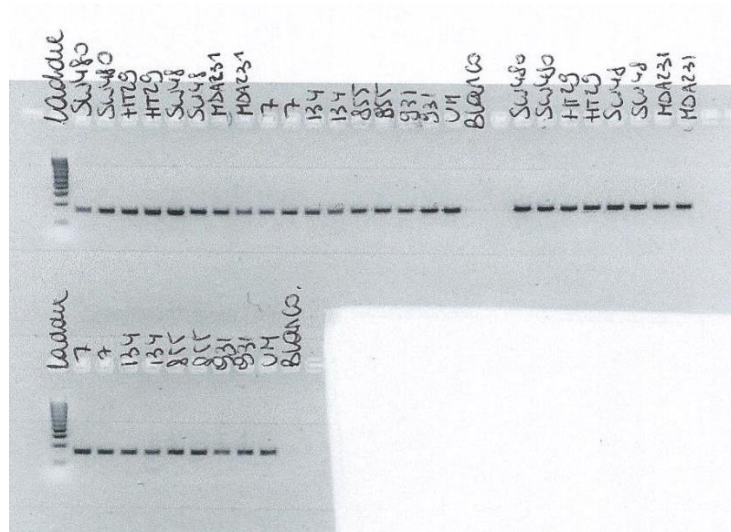 Ladder SW480 SW480 HT29 HT29 SW48 SW48 MDA231 MDA231 7 7 134 134 855 855 931 931 VM Blanco SW480 SW480 HT29 HT29 SW48 SW48 MDA231 MDA231
Ladder 7 7 134 134 855 855 931 931 VM Blanco.